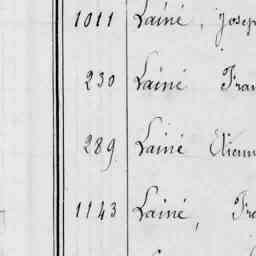 1011 Lainé, Josep
230 Lainé Fran
289 Lainé Etienn
1143 Lainé, Fra